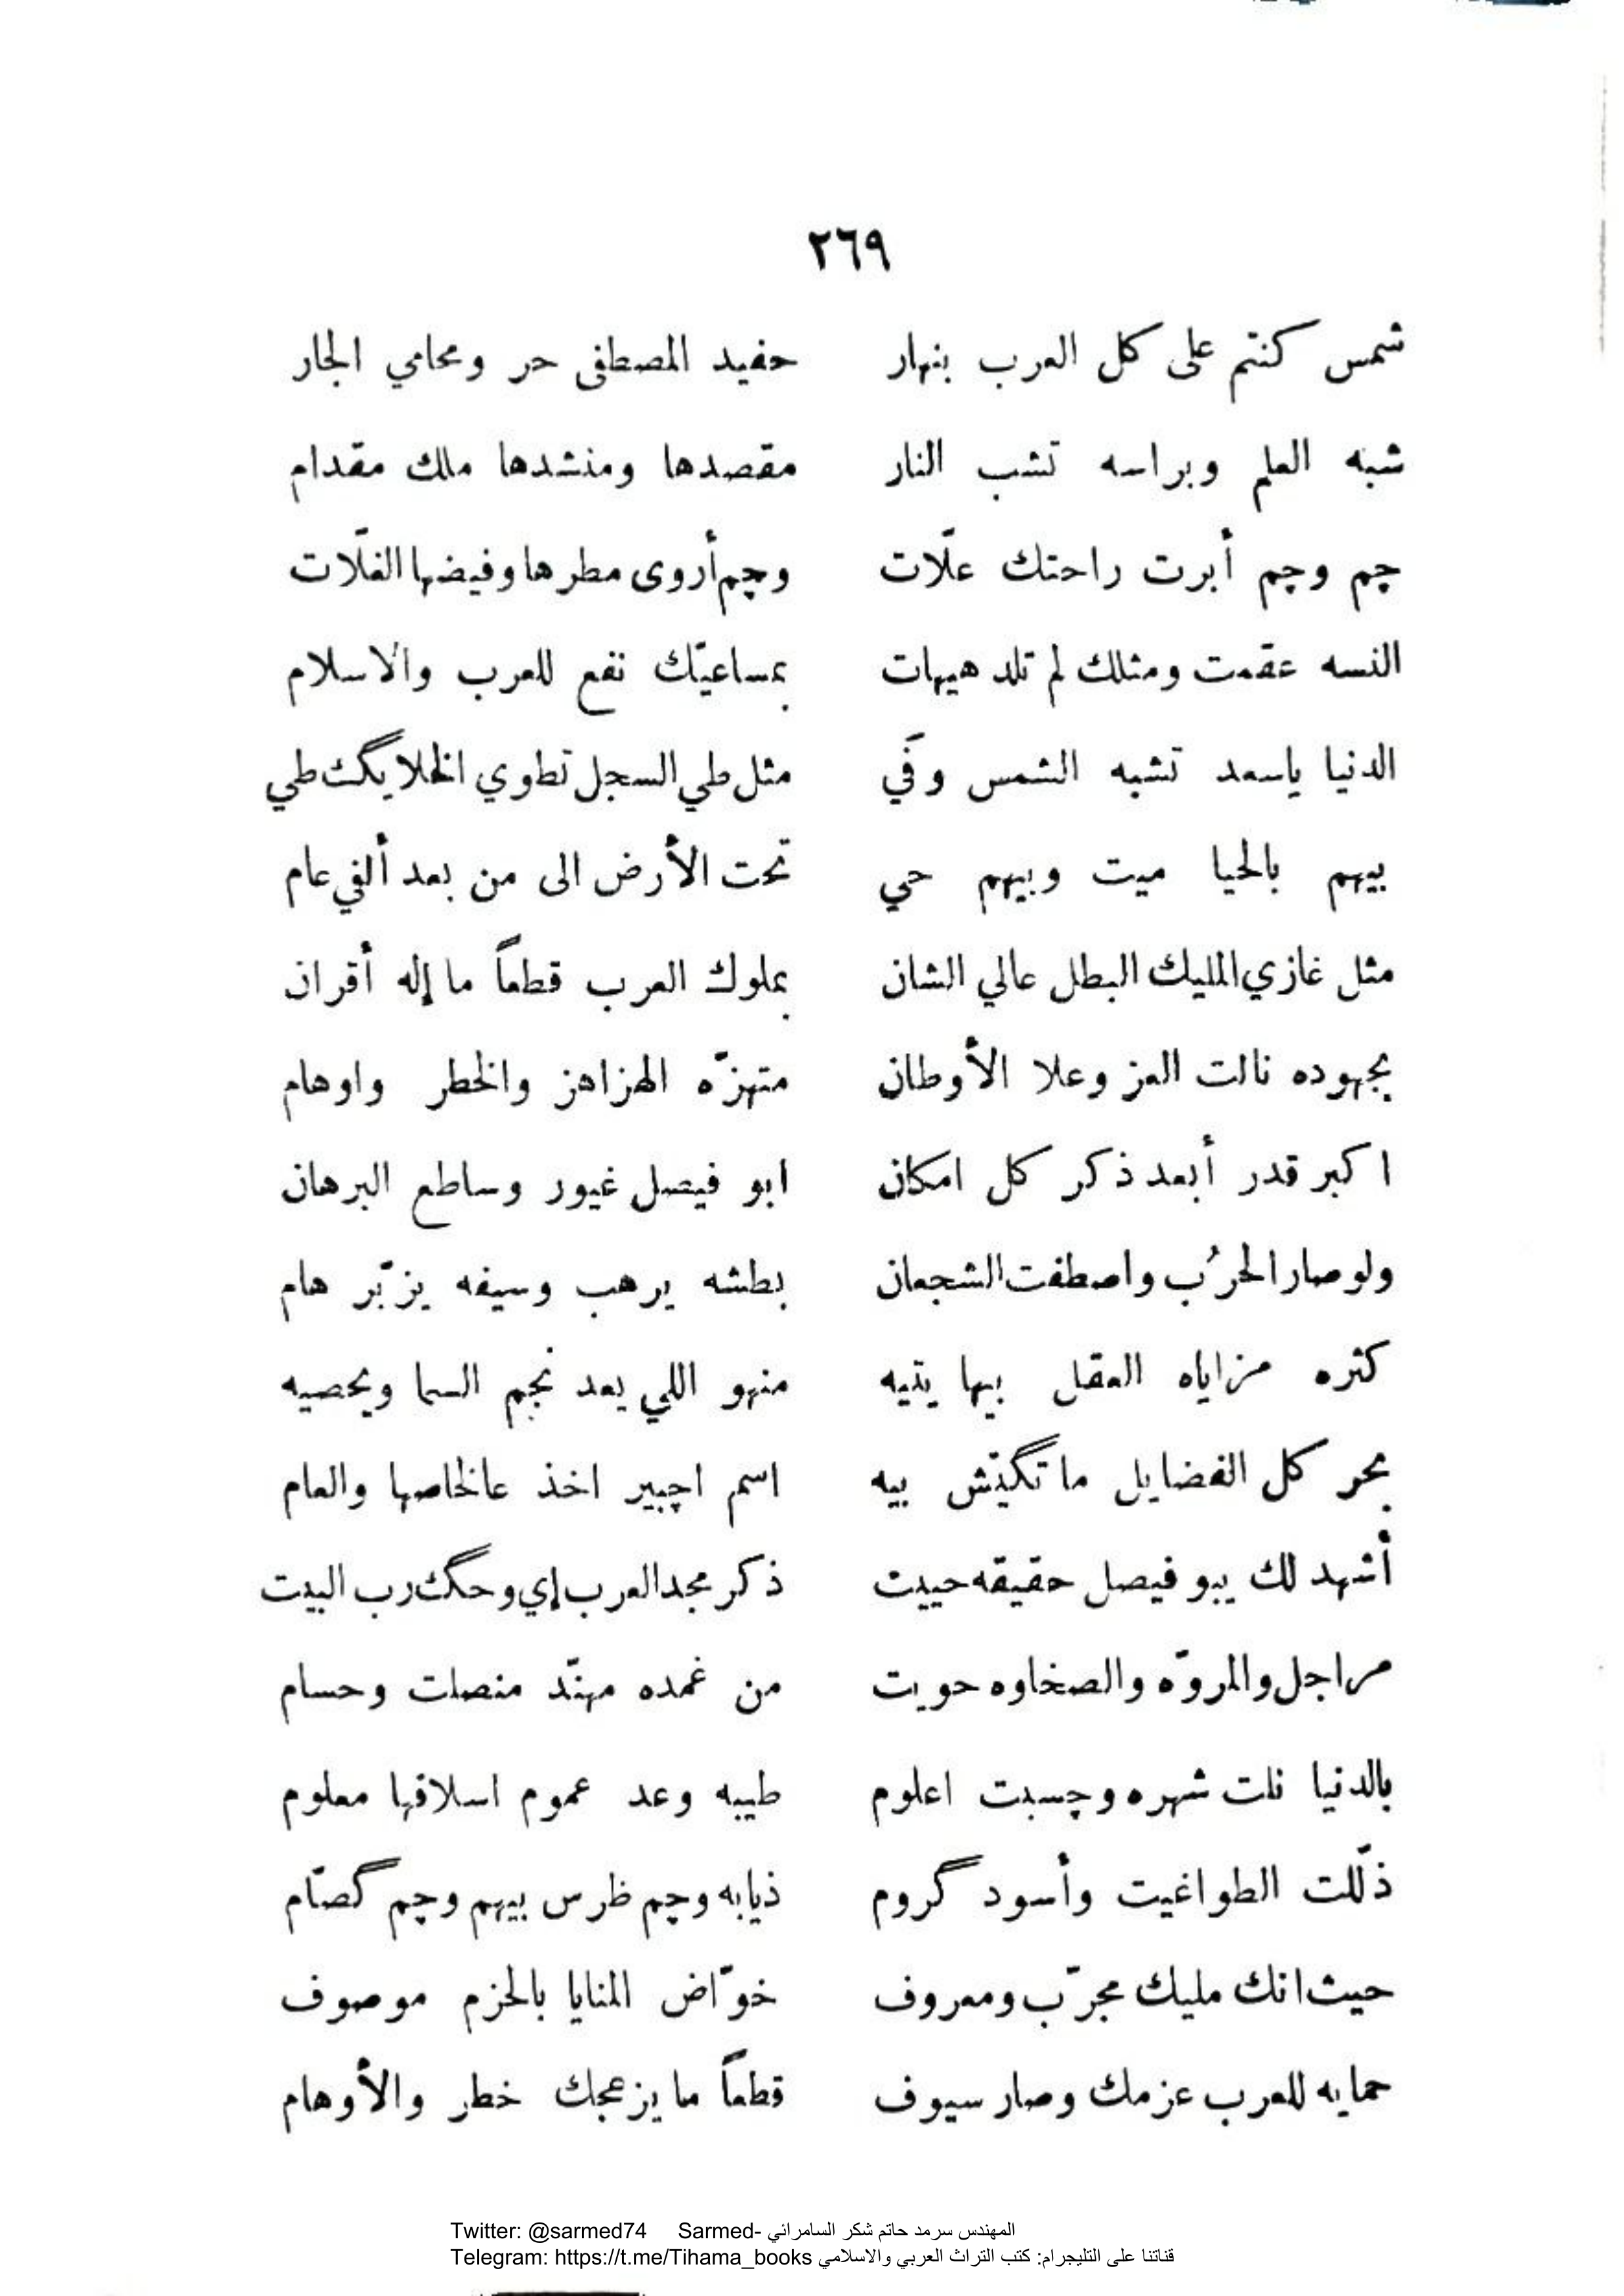 ٢٦٩
شمس كنتم على كل العرب بنهار حفيد المصطفى حر ومحامي الجار
شبه العلم وبراسه تشب النار مقصدها ومنشدها ملك مقدام
چم وچم أبرت راحتك علّات وچم أروى مطرها وفيضها الغلّات
النسه عقمت ومثلك لم تلد هيهات بمساعيّك نفع للعرب والاسلام
الدنيا ياسعد تشبه الشمس وفَي مثل طي السجل تطوي الخلايگ طي
بيهم بالحيا ميت وبيهم حي تحت الأرض الى من بعد ألفي عام
مثل غازي المليك البطل عالي الشان بملوك العرب قطعاً ما إله أقران
بجهوده نالت العز وعلا الأوطان متهزّه الهزاهز والخطر واوهام
اكبر قدر أبعد ذكر كل امكان ابو فيصل غيور وساطع البرهان
ولو صار الحرُب واصطفت الشجعان بطشه يرهب وسيفه يزبّر هام
كثره مزاياه العقل بيها يتيه منهو اللي يعد نجم السما ويحصيه
بحر كل الفضايل ما تگيّش بيه اسم اچبير اخذ عالخاصها والعام
أشهد لك يبو فيصل حقيقه حييت ذكر مجد العرب إي وحگك رب البيت
مراجل والمروّه والصخاوه حويت من غمده مهنّد منصلت وحسام
بالدنيا نلت شهره وچسبت اعلوم طيبه وعد عموم اسلافها معلوم
ذلّلت الطواغيت وأسود گروم ذيابه وچم ظرس بيهم وچم گصّام
حيث انك مليك مجرّب ومعروف خوّاض المنايا بالحزم موصوف
حمايه للعرب عزمك وصار سيوف قطعاً ما يزعجك خطر والأوهام
Twitter: @sarmed74 Sarmed- المهندس سرمد حاتم شكر السامرائي
Telegram: https://t.me/Tihama_books قناتنا على التليجرام: كتب التراث العربي والاسلامي